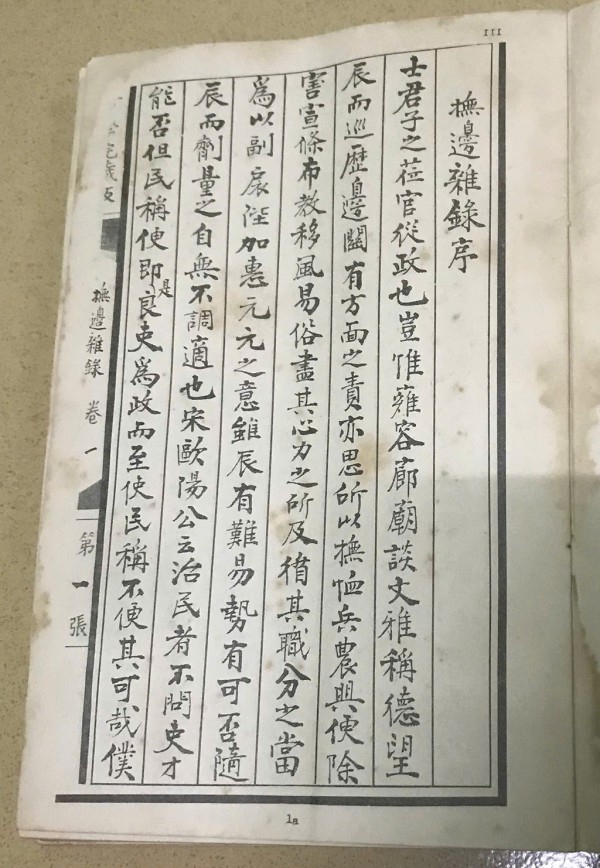 III
撫邊雜錄序
士君子之莅官從政也豈惟雍容廊廟談文雅稱德望
辰而巡歷邊閫有方面之責亦思所以撫恤兵農興便除
害宣條布教移風易俗盡其心力之所及循其職分之當
爲以副宸陛加惠元元之意雖辰有難易勢有可否隨
辰而劑量之自無不調適也宋歐陽公云治民者不問吏才
能否但民稱便即是良吏爲政而至使民稱不便其可哉僕
撫邊雜錄 卷一
第一張
1a